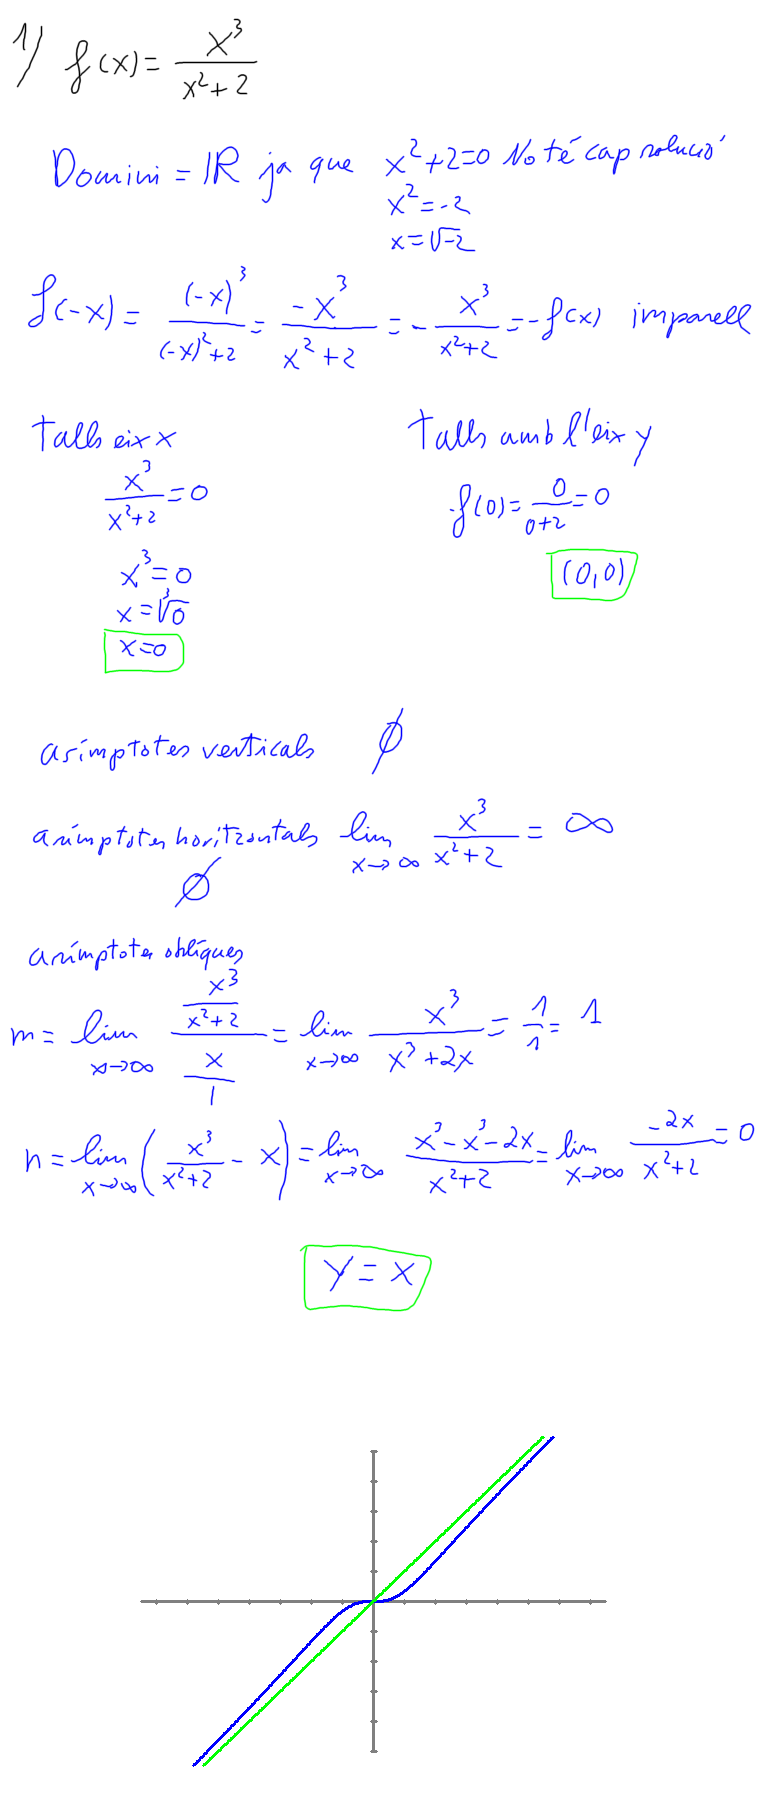 1) f(x) = x³/(x²+2)
Domini = IR ja que x²+2=0 No té cap solució
x² = -2
x = √-2
f(-x) = (-x)³/((-x)²+2) = -x³/(x²+2) = - x³/(x²+2) = -f(x) imparell
Talls eix x
x³/(x²+2) = 0
x³ = 0
x = ³√0
x=0
Talls amb l'eix y
f(0) = 0/(0+2) = 0
(0,0)
asímptotes verticals ∅
asímptotes horitzontals lim x→∞ x³/(x²+2) = ∞
∅
asímptotes obliques
m = lim x→∞ (x³/(x²+2))/(x/1) = lim x→∞ x³/(x³+2x) = 1/1 = 1
n = lim x→∞ (x³/(x²+2) - x) = lim x→∞ (x³-x³-2x)/(x²+2) = lim x→∞ -2x/(x²+2) = 0
y = x